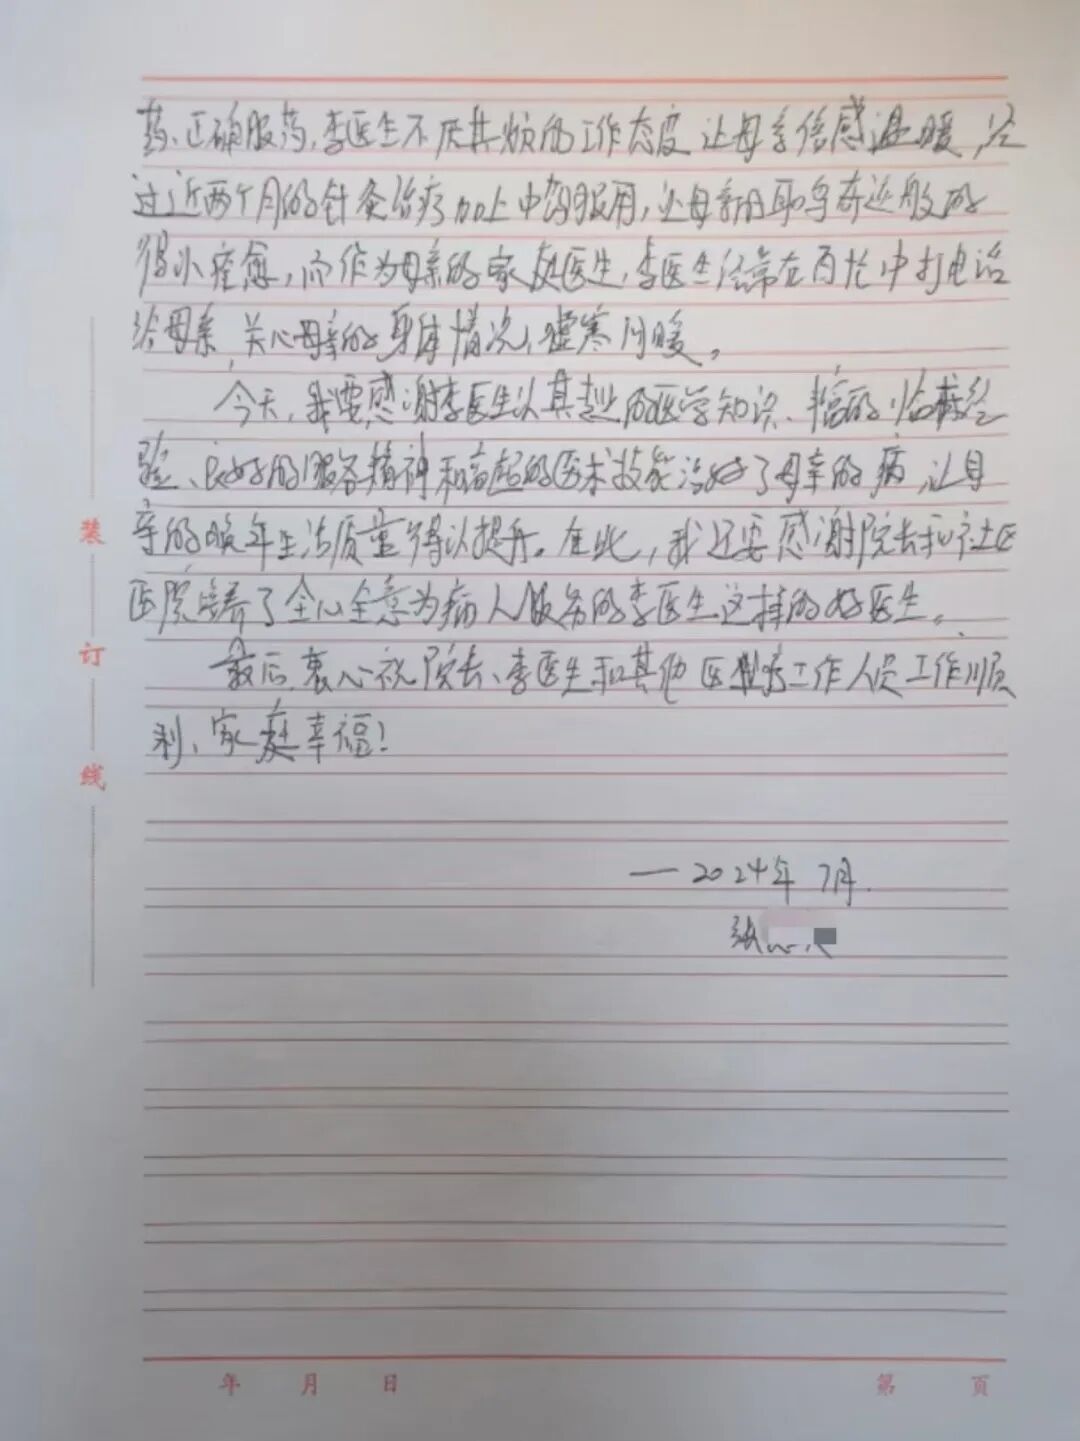 药、正确服药,李医生不厌其烦的工作态度让母亲倍感温暖,经
过近两个月的针灸治疗加上中药服用,让母亲的耳鸣奇迹般的
得以痊愈,而作为母亲的家庭医生,李医生经常在百忙中打电话
给母亲,关心母亲的身体情况,嘘寒问暖。
今天,我要感谢李医生以其专业的医学知识、丰富的临床经
验、良好的服务精神和高超的医术技能治好了母亲的病,让母
亲的晚年生活质量得以提升。在此,我还要感谢院长和社区
医院培养了全心全意为病人服务的李医生这样的好医生。
最后,衷心祝院长、李医生和其他医疗工作人员工作顺
利、家庭幸福!
装
订
线
—2024年7月.
张
年 月 日
第 页